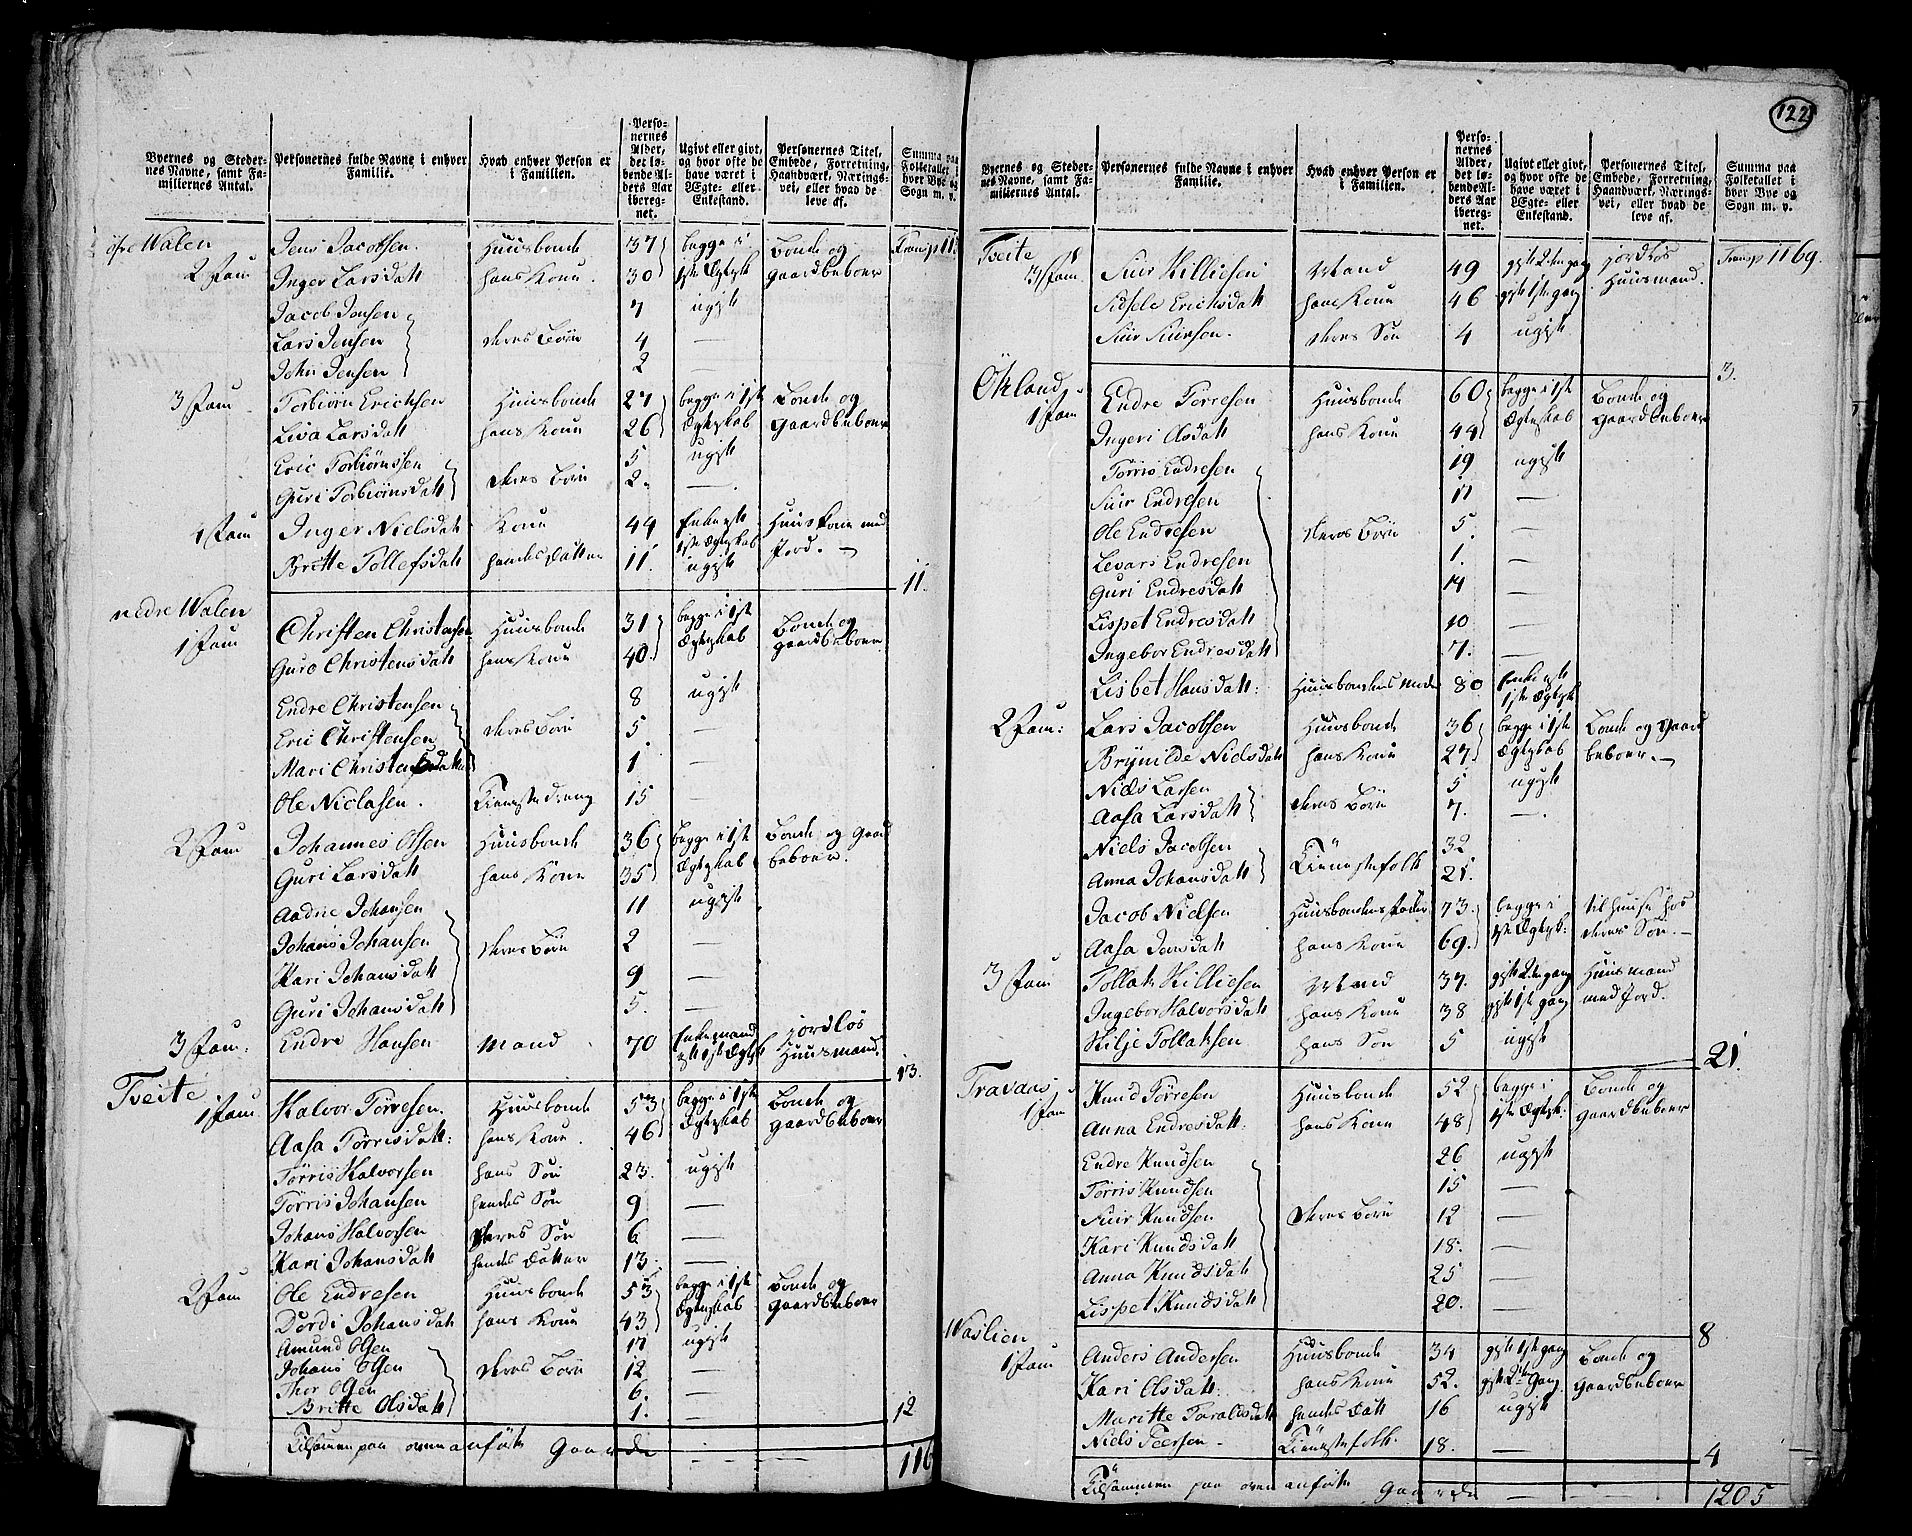 122
Byernes og Steder-nes Navne, samt Fa-miliernes Antal. Personernes fulde Navne i enhver Familie. Hvad enhver Person er i Familien. Perso-nernes Alder, det lø-bende Al-ders Aar ibereg-net. Ugivt eller givt, og hvor ofte de have været i Ægte- eller Enkestand. Personernes Titel, Embede, Forretning, Haandværk, Nærings-vei, eller hvad de leve af. Summa paa Folketallet i hver Bye og Sogn m. v.
øfre Walen Jens Jacobsen. Huusbonde 37 begge i Bonde og
2 Fam Inger Larsdatt hans Kone. 30 1ste Ægtesk Gaardbeboer
Jacob Jensen 7 ugift
Lars Jensen deres Børn 4 —
John Jensen 2 —
3 Fam Torbiørn Erichsen Huusbonde 27 begge i 1ste Bonde og
Liva Larsdatt hans Kone 26 Ægteskab Gaardbeboer
Eric Torbiørnssen 5 ugift
Guri Torbiørnsdatt deres Børn 2. —
1 Fam Inger Nielsdatt Kone 44 Enke efter Huuskone med
Britte Tollefsdatt hendes Datter 11. ugift Jord. — 11.
nedre Walen
1 Fam Christen Christensen Huusbonde 31 begge i 1ste Bonde og
Guro Christensdatt hans Kone 40. Ægteskab Gaardbeboer
Endre Christensen 8 ugift
Eric Christensen deres Børn 5 —
Mari Christensdatter 1 —
Ole Niclasen. Tienestedreng 15 —
2 Fam Johannes Olsen Huusbonde 36 begge i 1ste Bonde og Gaard
Guri Larsdatt hans Kone 35 Ægteskab beboer.
Aadne Johansen 11 ugift
Johans Johansen deres Børn 2 —
Kari Johansdatt 9 —
Guri Johansdatt 5. —
3 Fam: Endre Hansen Mand 70 Enkemand jordløs Huusmand. 13.
Tveite
1 Fam Halvor Tørresen. Huusbonde 53 begge i 1ste Bonde og
Aasa Tørrisdatt: hans Kone. 46 Ægteskab Gaardbeboer
Tørris Halvorsen hans Søn 23. ugift
Tørris Johansen hendes Søn 9 —
Johans Halvorsen deres Søn 6 —
Kari Johansdatt hendes Datter 13. —
2 Fam Ole Endresen Huusbonde 53 begge i 1ste Bonde og
Dordi Johansdatt hans Kone 43 Ægteskab Gaardbeboer
Amund Olsen 17 ugift
Johans Olsen deres Børn 12 —
Thor Olsen 6. —
Britte Olsdatt 1. — 12
Tilsammen paa ovenanførte Gaarde — 116
Byernes og Steder-nes Navne, samt Fa-miliernes Antal. Personernes fulde Navne i enhver Familie. Hvad enhver Person er i Familien. Perso-nernes Alder, det lø-bende Al-ders Aar ibereg-net. Ugivt eller givt, og hvor ofte de have været i Ægte- eller Enkestand. Personernes Titel, Embede, Forretning, Haandværk, Nærings-vei, eller hvad de leve af. Summa paa Folketallet i hver Bye og Sogn m. v.
Tveite Transp 1169.
3 Fam. Siur Killiesen Mand 49 gift 2den gang jordløs Huusmand.
Sidsele Ericksdatt hans Kone 46 gift 1ste gang
Siur Siursen. deres Søn 4 ugift 3.
Økland
1 Fam Endre Torresen Huusbonde 60 begge i 1ste Bonde og
Ingeri Olsdatt hans Kone 44 Ægteskab Gaardbeboer
Tørris Endresen 19 ugift
Siur Endresen 17 —
Ole Endresen deres Børn 5. —
Levars Endresen 1. —
Guri Endresdatt 14 —
Lispet Endresdatt 10 —
Ingebor Endresdatt 7. —
Lisbet Hansdatt: Huusbondens Moder 80 Enke efter 1ste Ægtesk
2 Fam: Lars Jacobsen Huusbonde 36 begge i 1ste Bonde og Gaard
Brynilde Nielsdatt hans Kone 27 Ægteskab beboer. —
Niels Larsen 5 ugift
Aasa Larsdatt deres Børn 7. —.
Niels Jacobsen 32
Anna Johansdatt Tienestefolk 21.
Jacob Nielsen Huusbondens Fader 73. begge i til huuse hos
Aasa Jensdatt hans Kone 69. 1ste Ægtesk: deres Søn. —
3 Fam Tollak Killiesen Mand 37. gift 2den gang Huusmand
Ingebor Halvorsdatt hans Kone 38 gift 1ste gang med Jord.
Kilje Tollaksen hans Søn 5 ugift 21.
Travaas
1 Fam Knud Tørresen Huusbonde 52 begge i Bonde og
Anna Endresdatt. hans Kone 48 1ste Ægtesk: Gaardbeboer
Endre Knudsen 26 ugift
Tørris Knudsen 15 —
Siur Knudsen deres Børn 12 —
Kari Knudsdatt 18. —
Anna Knudsdatt 25 —
Lispet Knudsdatt 20. — 8
Waslien
1 Fam Anders Andersen Huusbonde 34 gift 1ste gang Bonde og
Kari Olsdatt: hans Kone 52. gift 2den Gang Gaardbeboer
Maritte Taraldsdatt hendes Datt 16 ugift
Niels Peersen. Tienestefolk. 18. — 4
Tilsammen paa ovenanførte Gaarde — 1205